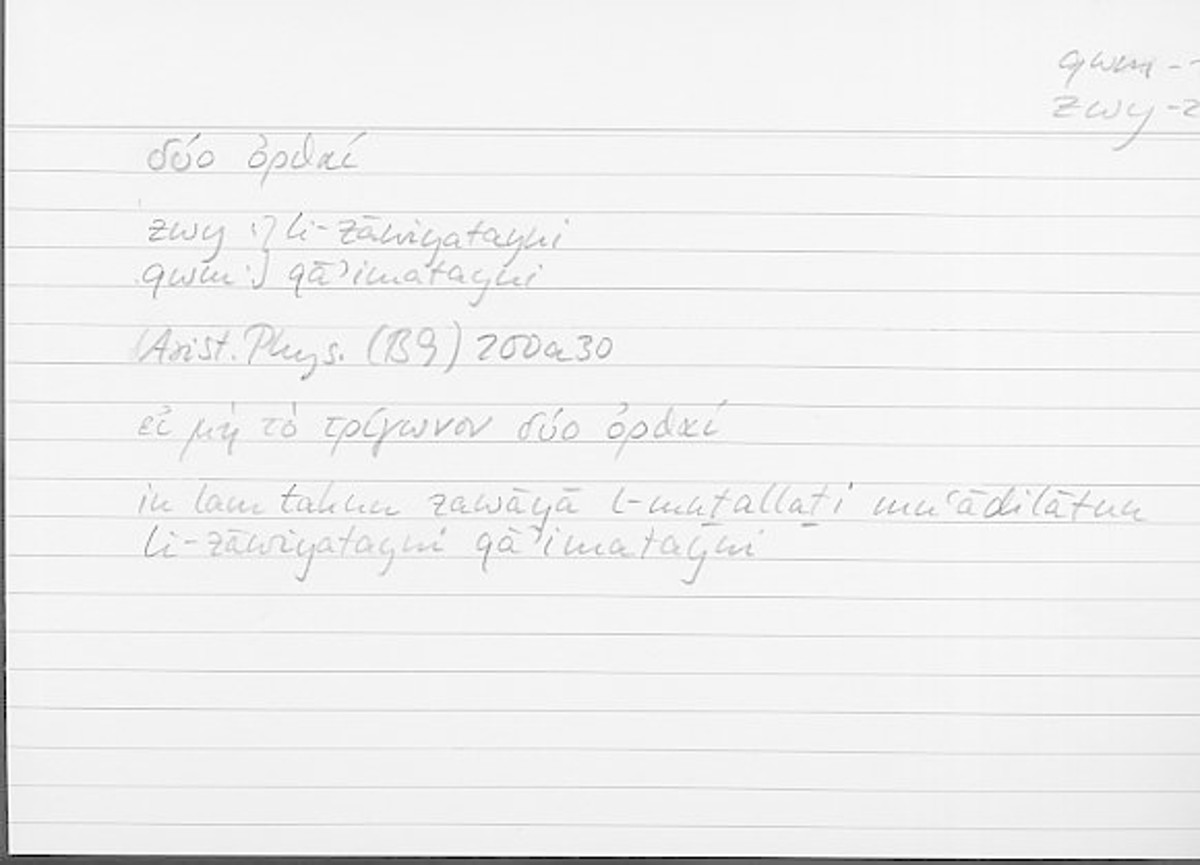 qwm -
zwy -2
δύο ὀρθαί
zwy :} li-zāwiyatayni
qwm :} qā'imatayni
Arist. Phys. (B9) 200a30
εἰ μὴ τὸ τρίγωνον δύο ὀρθαί
in lam takun zawāyā l-muṯallaṯi muʿādilatun
li-zāwiyatayni qā'imatayni